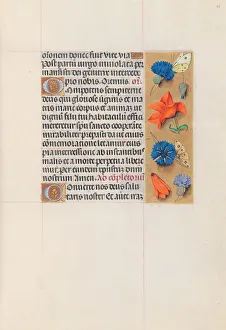 Post partū virgo inviolata per
mansisti dei genitrix intercede
pro nobis. Oremus. or̄.
Omnipotens sempiterne
deus qui gloriose virginis et ma
tris marie corpus et animam
ut dignum filii tui habitaculū effici
mereretur spū sancto cooperāte
mirabiliter preparasti da ut cuius
cōmemoratione letamur eius
pia intercessione ab instantibus
malis et a morte perpetua libere
mur. per eundem xp̄m dominū
nostrum Amen. Ad cōpletoriū
Converte nos deus salu
taris noster Et averte iram